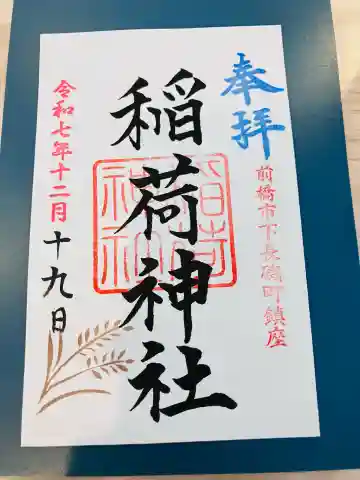 奉拝
前橋市下長磯町鎮座
稲荷神社
稲荷神社
令和七年十二月十九日